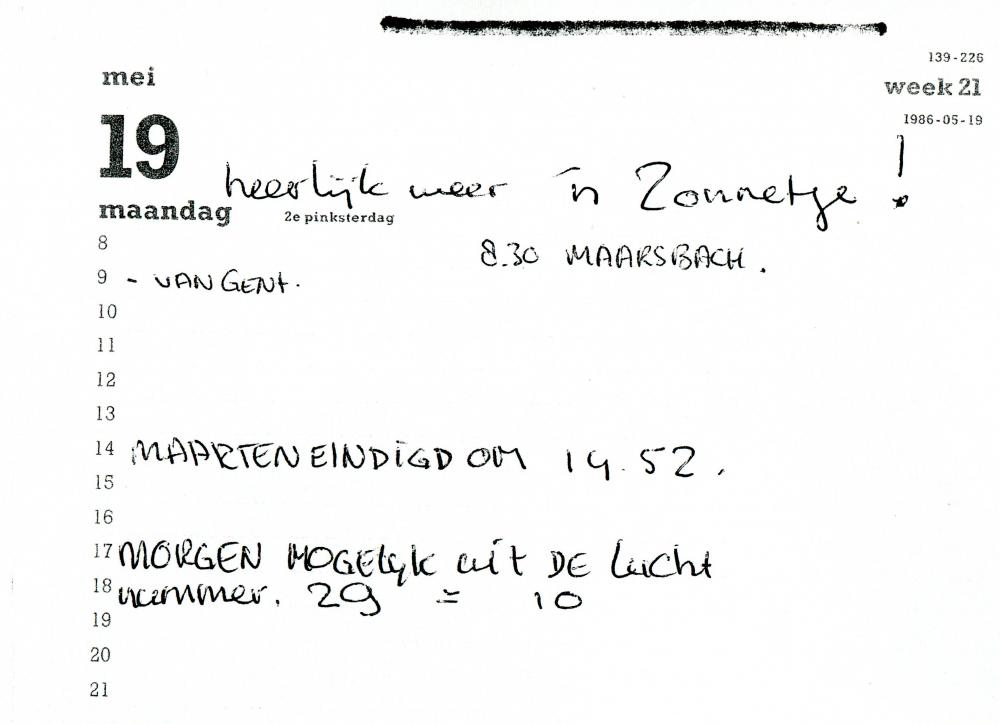 139-226
mei
week 21
1986-05-19
19
heerlijk weer 'n Zonnetje !
maandag 2e pinksterdag
8
8.30 MAARSBACH.
9 - VAN GENT.
10
11
12
13
14 MAARTEN EINDIGD OM 14.52.
15
16
17 MORGEN MOGELYK uit DE lucht
18 nummer. 29 = 10
19
20
21